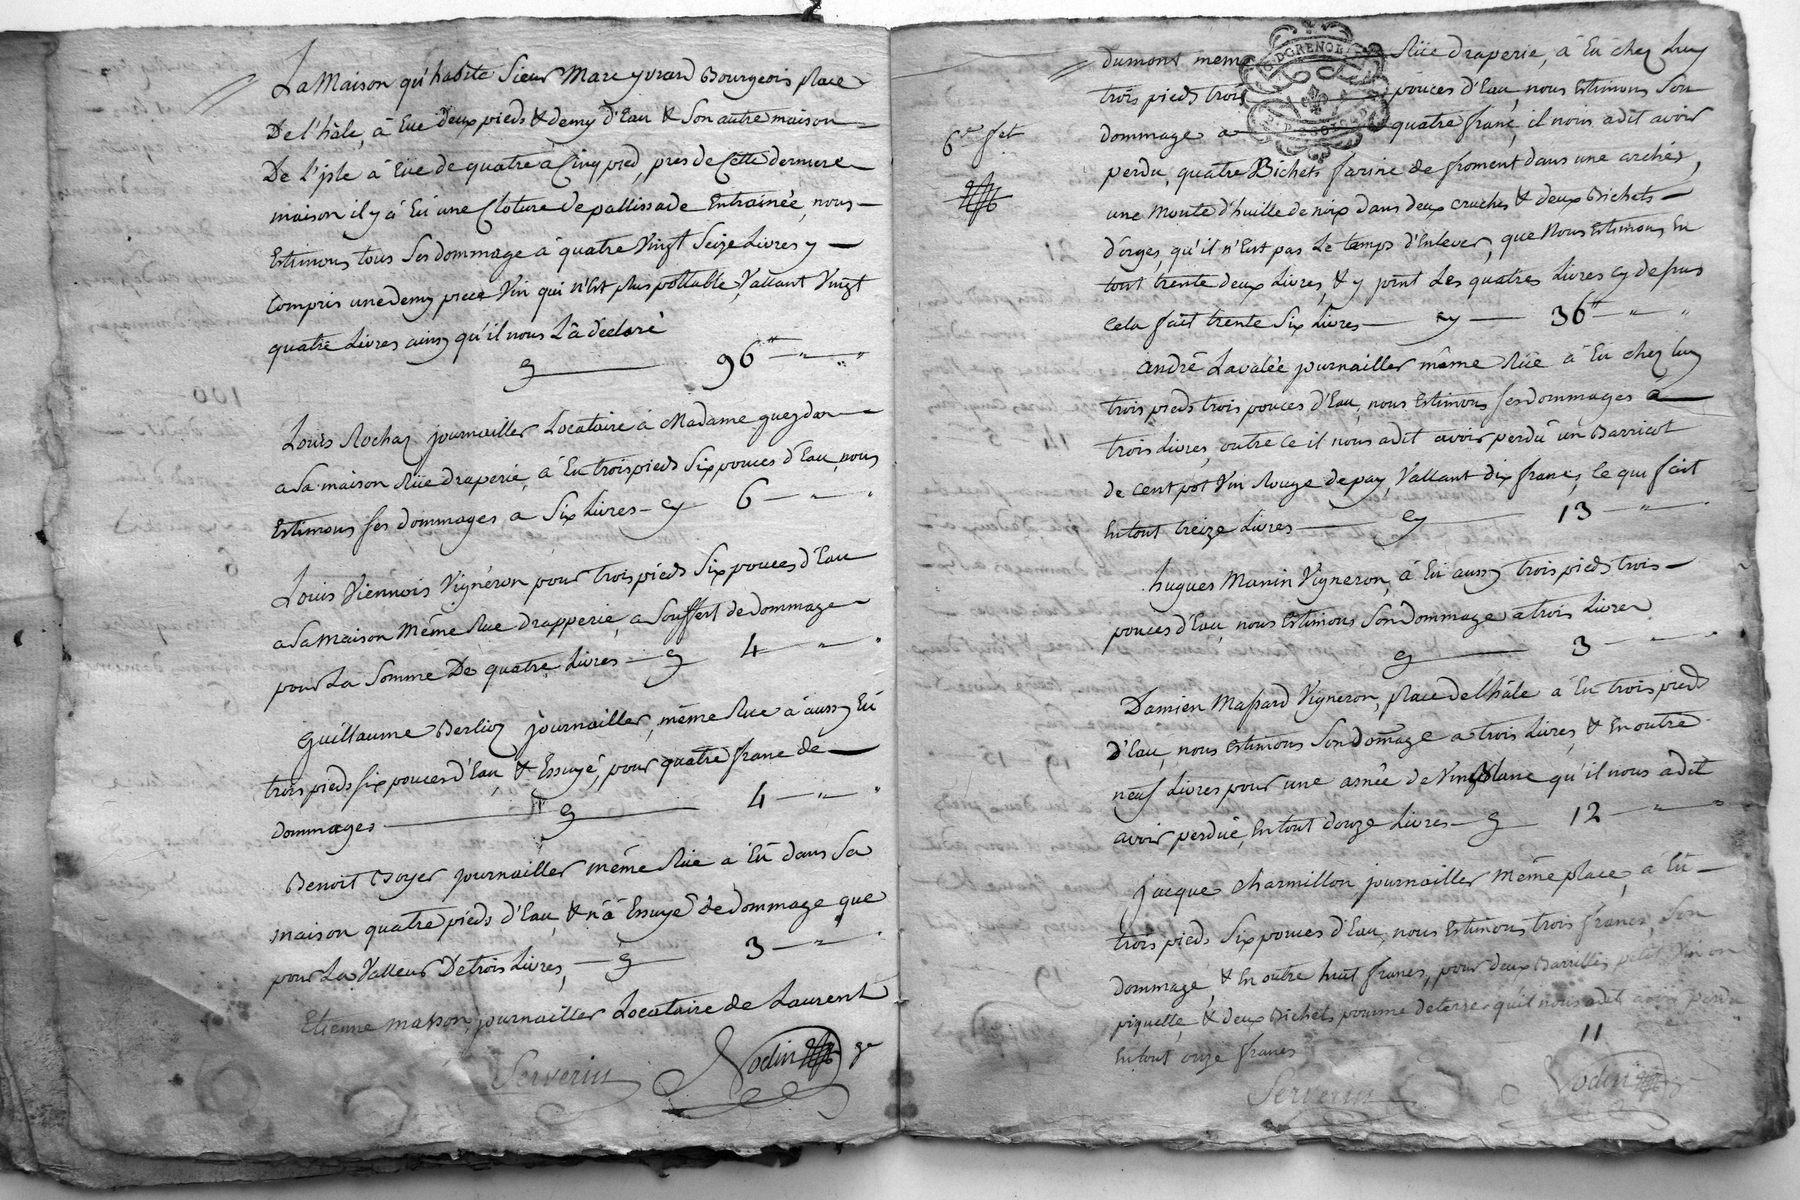 La Maison qu'habite Sieur Marc yvrard Bourgeois place
De l'hâle, à Eue deux pieds & demy d'Eau & Son autre maison
De L'jsle à Eüe de quatre à Cinq pied, pres de Cette derniere
maison il y à Eü une Cloture de pallissade Entrainée, nous
Estimons tous Ses dommage à quatre Vingt Seize Livres y
Compris une demy piece Vin qui n'Est plus pottable, Vallant Vingt
quatre Livres ainsy qu'il nous L'à déclaré
Cy 96 tt " "
Louis Rochas journailler Locataire à Madame gueydan
a sa maison Rüe draperie, à Eu trois pieds Six pouces d'Eau, nous
Estimons ses dommages a Six Livres cy 6 " "
Louis Viennois Vigneron pour trois pieds Six pouces d'Eau
a Sa maison même Rue drapperie, a Souffert de dommage
pour La Somme De quatre Livres cy 4 " "
guillaume Berlioz journailler, même Rue à aussy Eü
trois pieds six pouces d'Eau & Essuyé, pour quatre franc de
dommages cy 4 " "
Benoit Boyer journailler même Rüe a Eü dans Sa
maison quatre pieds d'Eau, & n'à Essuyé de dommage que
pour La Valleur De trois Livres, cy 3 " "
Etienne masson, journailler Locataire de Laurent
Serverin Vodin
6e fet
dumont meme Rüe draperie, à Eü chez Luy
trois pieds trois pouces d'Eau, nous Estimons Son
dommage a quatre franc, il nous a dit avoir
perdu, quatre Bichets farine de froment dans une arche,
une Monte d'huille de noix dans deux cruches & deux Bichets
d'orges, qu'il n'Eut pas Le temps d'Enlever, que Nous Estimons En
tout trente deux Livres, & y joint Les quatres Livres Cy dessus
Cela fait trente Six Livres cy 36 tt " "
André Lavalée journailler même Rüe à Eü chez luy
trois pieds trois pouces d'Eau, nous Estimons ses dommages à
trois Livres, outre Ce il nous a dit avoir perdu un Barricot
de Cent pot Vin Rouge de pay, Vallant dix francs, Ce qui fait
En tout treize Livres cy 13 "
hugues Manin Vigneron, à Eü aussy trois pieds trois
pouces d'Eau, nous Estimons Son dommage a trois Livres
cy 3 " "
Damien Massard Vigneron, place de l'hâle à Eu trois pieds
d'Eau, nous Estimons Son domage a trois Livres, & En outre
neuf Livres pour une asnée de Vin Blanc qu'il nous a dit
avoir perdüe, En tout douze Livres cy 12 " "
jacque Charmillon, journailler même place, a Eü
trois pieds Six pouces d'Eau, nous Estimons trois francs, Son
dommage, & En outre huit francs, pour deux Barrilles petit Vin ou
piquette, & deux Bichets pomme de terre qu'il nous a dit avoir perdu
En tout onze francs 11
Serverin Vodin